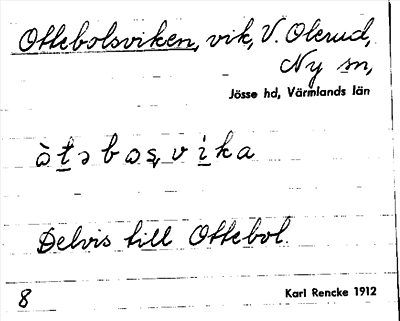 Ottebolsviken, vik, V. Olerud,
Ny sn,
Jösse hd, Värmlands län
Delvis till Ottebol.
8
Karl Rencke 1912